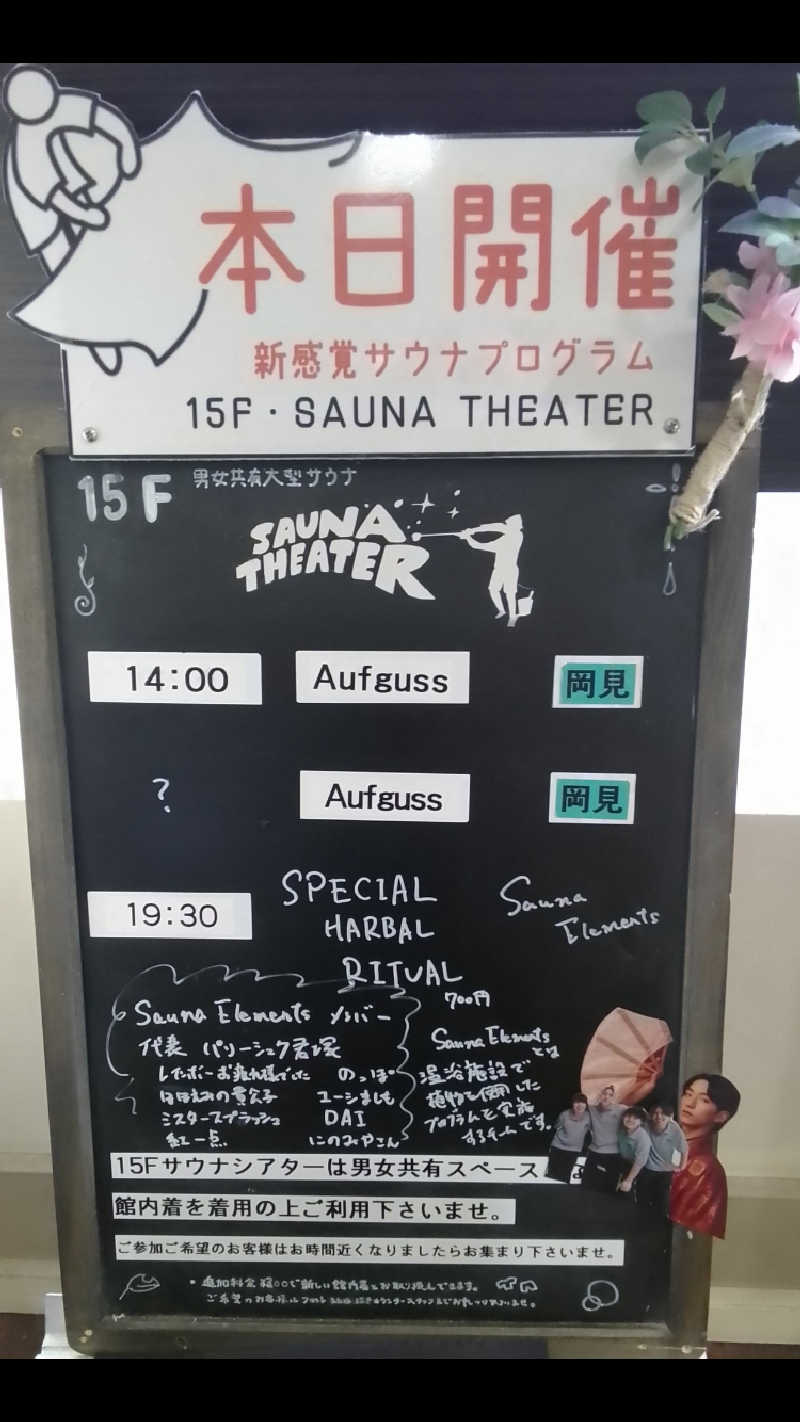 本日開催
新感覚サウナプログラム
15F・SAUNA THEATER
15F 男女共有大型サウナ
SAUNA THEATER
14:00 Aufguss 岡見
? Aufguss 岡見
19:30 SPECIAL HARBAL RITUAL Sauna Elements
700円
Sauna Elements メンバー
代表 パリーシュク君塚
レインボーお疲れ様でした のっぽ
ほほえみの貴公子 ユーシましも
ミスタースプラッシュ DAI
紅一点 にのみやこん
Sauna Elements
とは
温浴施設で
植物を使用した
プログラムを実施
するチームです。
15Fサウナシアターは男女共有スペース
館内着を着用の上ご利用下さいませ。
ご参加ご希望のお客様はお時間近くなりましたらお集まり下さいませ。
・追加料金 で新しい館内着とお取り換えできます。
ご希望のお客様は